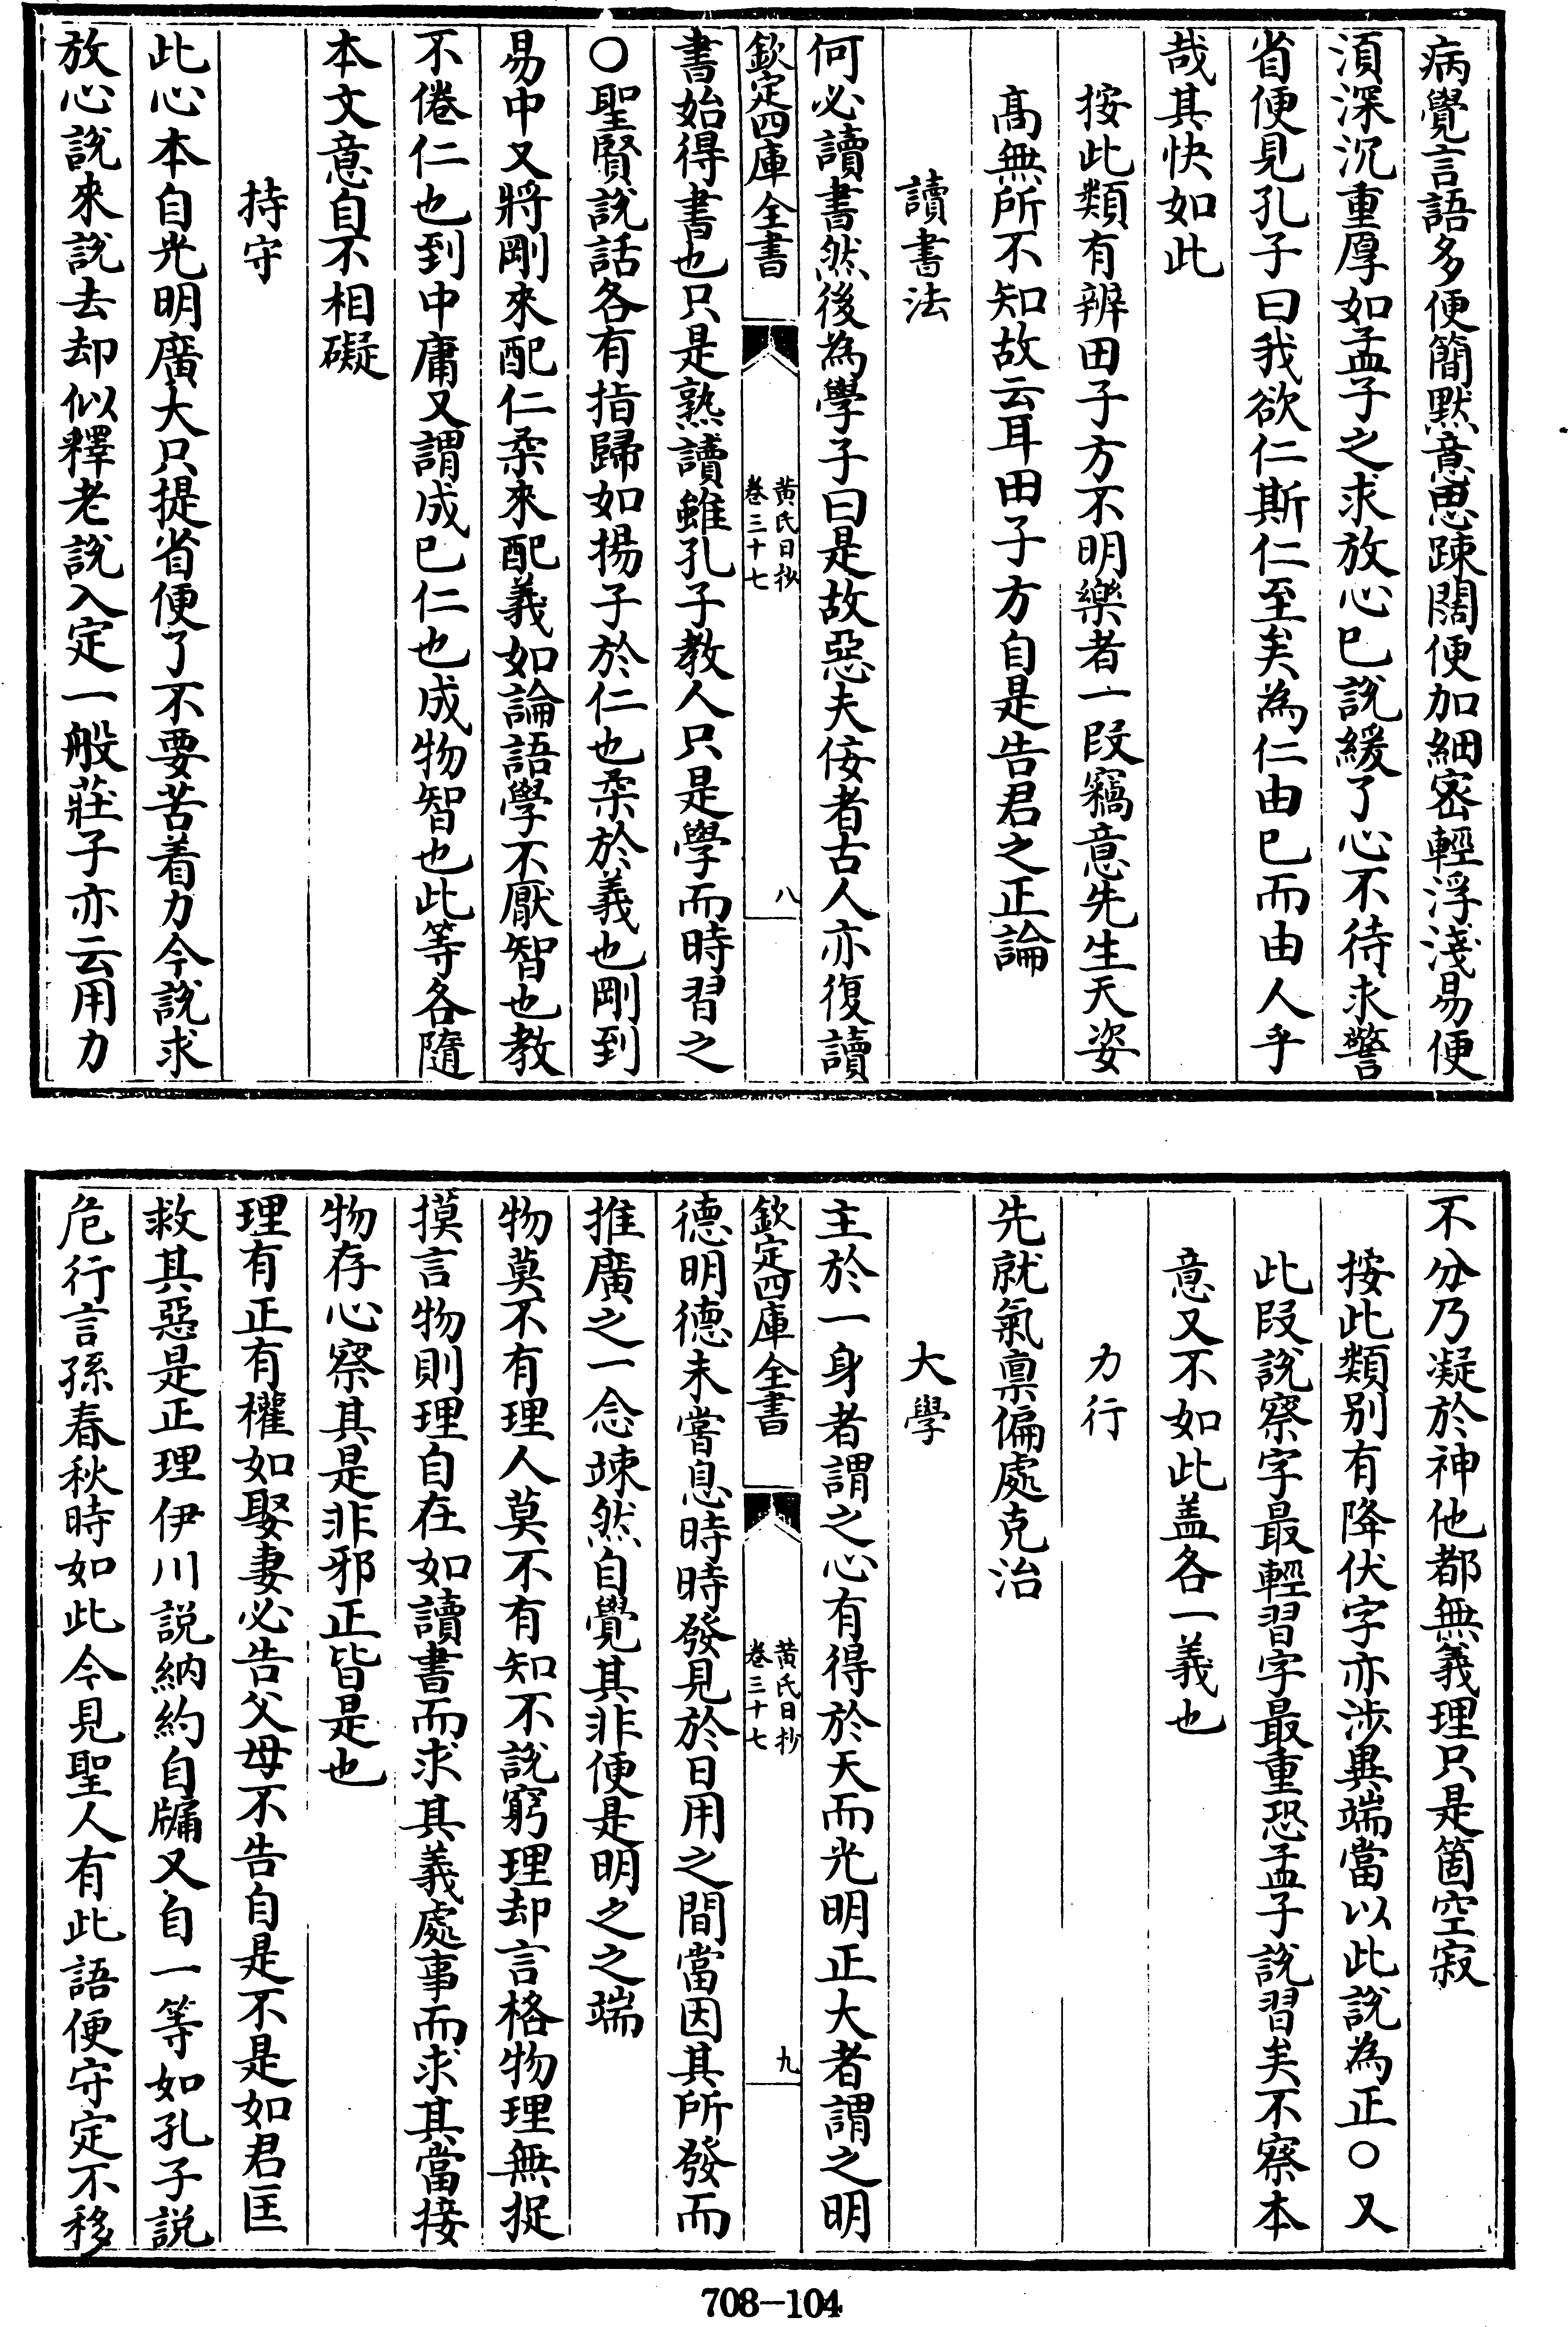 病覺言語多便簡黙意思踈闊便加細密輕浮淺易便
湏深沉重厚如孟子之求放心已說緩了心不待求警
省便見孔子曰我欲仁斯仁至矣為仁由已而由人乎
哉其快如此
按此類有辨田子方不明樂者一段竊意先生天姿
髙無所不知故云耳田子方自是告君之正論
讀書法
何必讀書然後為學子曰是故惡夫佞者古人亦復讀
欽定四庫全書
黄氏日抄
卷三十七
八
書始得書也只是熟讀雖孔子教人只是學而時習之
○聖賢說話各有指歸如揚子於仁也柔於義也剛到
易中又將剛來配仁柔來配義如論語學不厭智也教
不倦仁也到中庸又謂成已仁也成物智也此等各隨
本文意自不相礙
持守
此心本自光明廣大只提省便了不要苦着力今說求
放心說來說去却似釋老說入定一般莊子亦云用力
不分乃凝於神他都無義理只是箇空寂
按此類别有降伏字亦涉異端當以此說為正○又
此段說察字最輕習字最重恐孟子說習矣不察本
意又不如此盖各一義也
力行
先就氣禀偏處克治
大學
主於一身者謂之心有得於天而光明正大者謂之明
欽定四庫全書
黄氏日抄
卷三十七
九
德明德未嘗息時時發見於日用之間當因其所發而
推廣之一念竦然自覺其非便是明之之端
物莫不有理人莫不有知不說窮理却言格物理無捉
摸言物則理自在如讀書而求其義處事而求其當接
物存心察其是非邪正皆是也
理有正有權如娶妻必告父母不告自是不是如君匡
救其惡是正理伊川説納約自牖又自一等如孔子説
危行言孫春秋時如此今見聖人有此語便守定不移
708-104